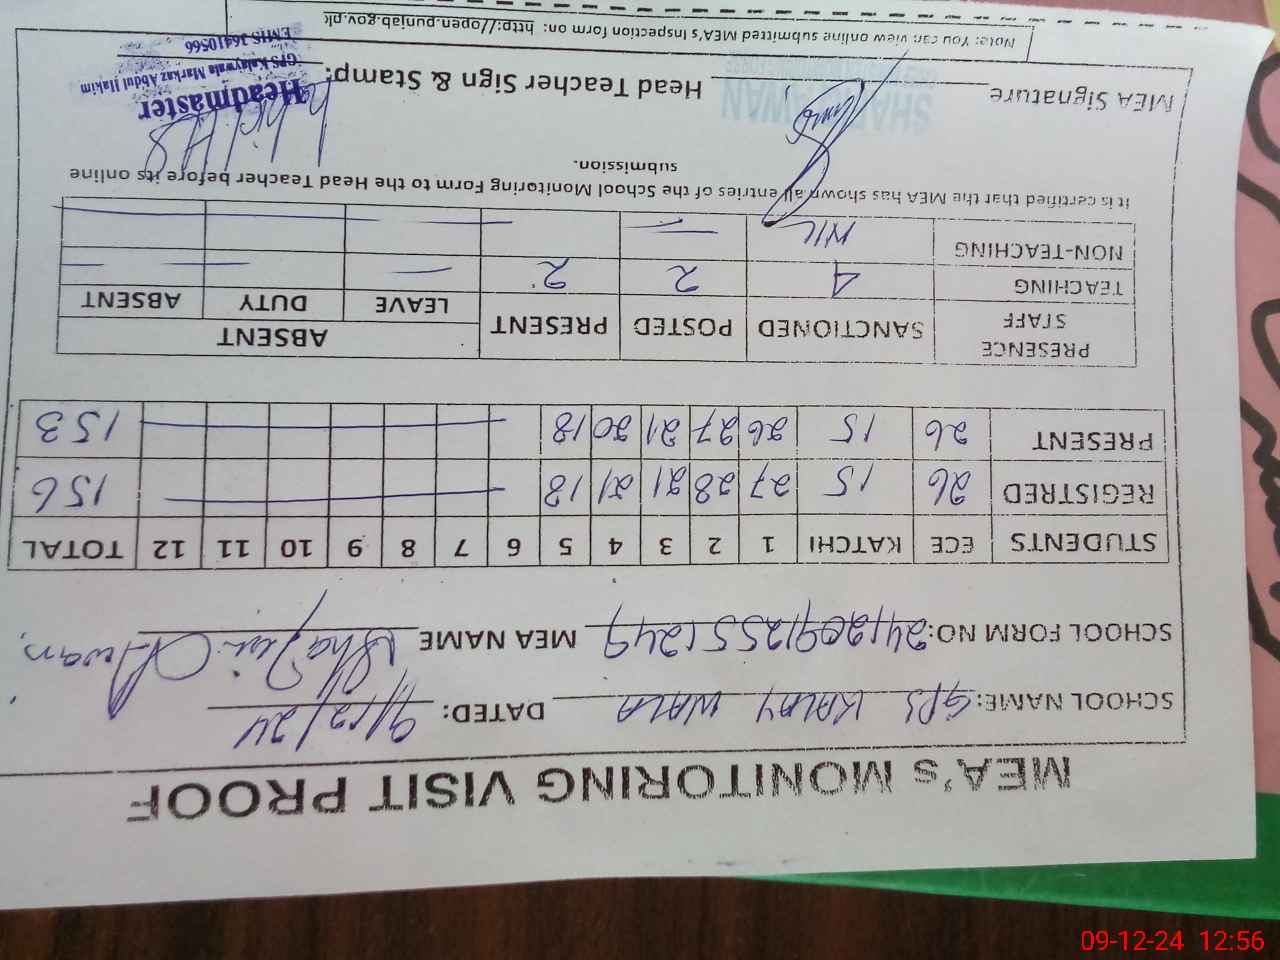 MEA's MONITORING VISIT PROOF
SCHOOL NAME: GPS KALAY WALA DATED: 9/12/24
SCHOOL FORM NO: 24120912551249 MEA NAME Shazia Awan
STUDENTS ECE KATCHI 1 2 3 4 5 6 7 8 9 10 11 12 TOTAL
REGISTRED 26 15 27 28 21 21 18 156
PRESENT 26 15 26 27 21 20 18 153
PRESENCE STAFF SANCTIONED POSTED PRESENT ABSENT
LEAVE DUTY ABSENT
TEACHING 4 2 2 — — —
NON-TEACHING NIL
It is certified that the MEA has shown all entries of the School Monitoring Form to the Head Teacher before its online
submission.
MEA Signature Head Teacher Sign & Stamp:
AWAN
Headmaster
GPS Kalaywala Markaz Abdul Hakim
EMIS 36410566
Note: You can view online submitted MEA's Inspection form on: http://open.punjab.gov.pk
09-12-24 12:56